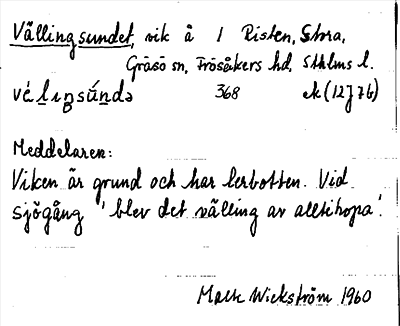 Vällingsundet, vik å 1 Risten, Stora,
Gräsö sn, Frösåkers hd, Sthlms l.
vé̱lıŋsúndə 368 ek (12J7b)
Meddelaren:
Viken är grund och har lerbotten. Vid
sjögång 'blev det välling av alltihopa'.
Mats Wickström 1960